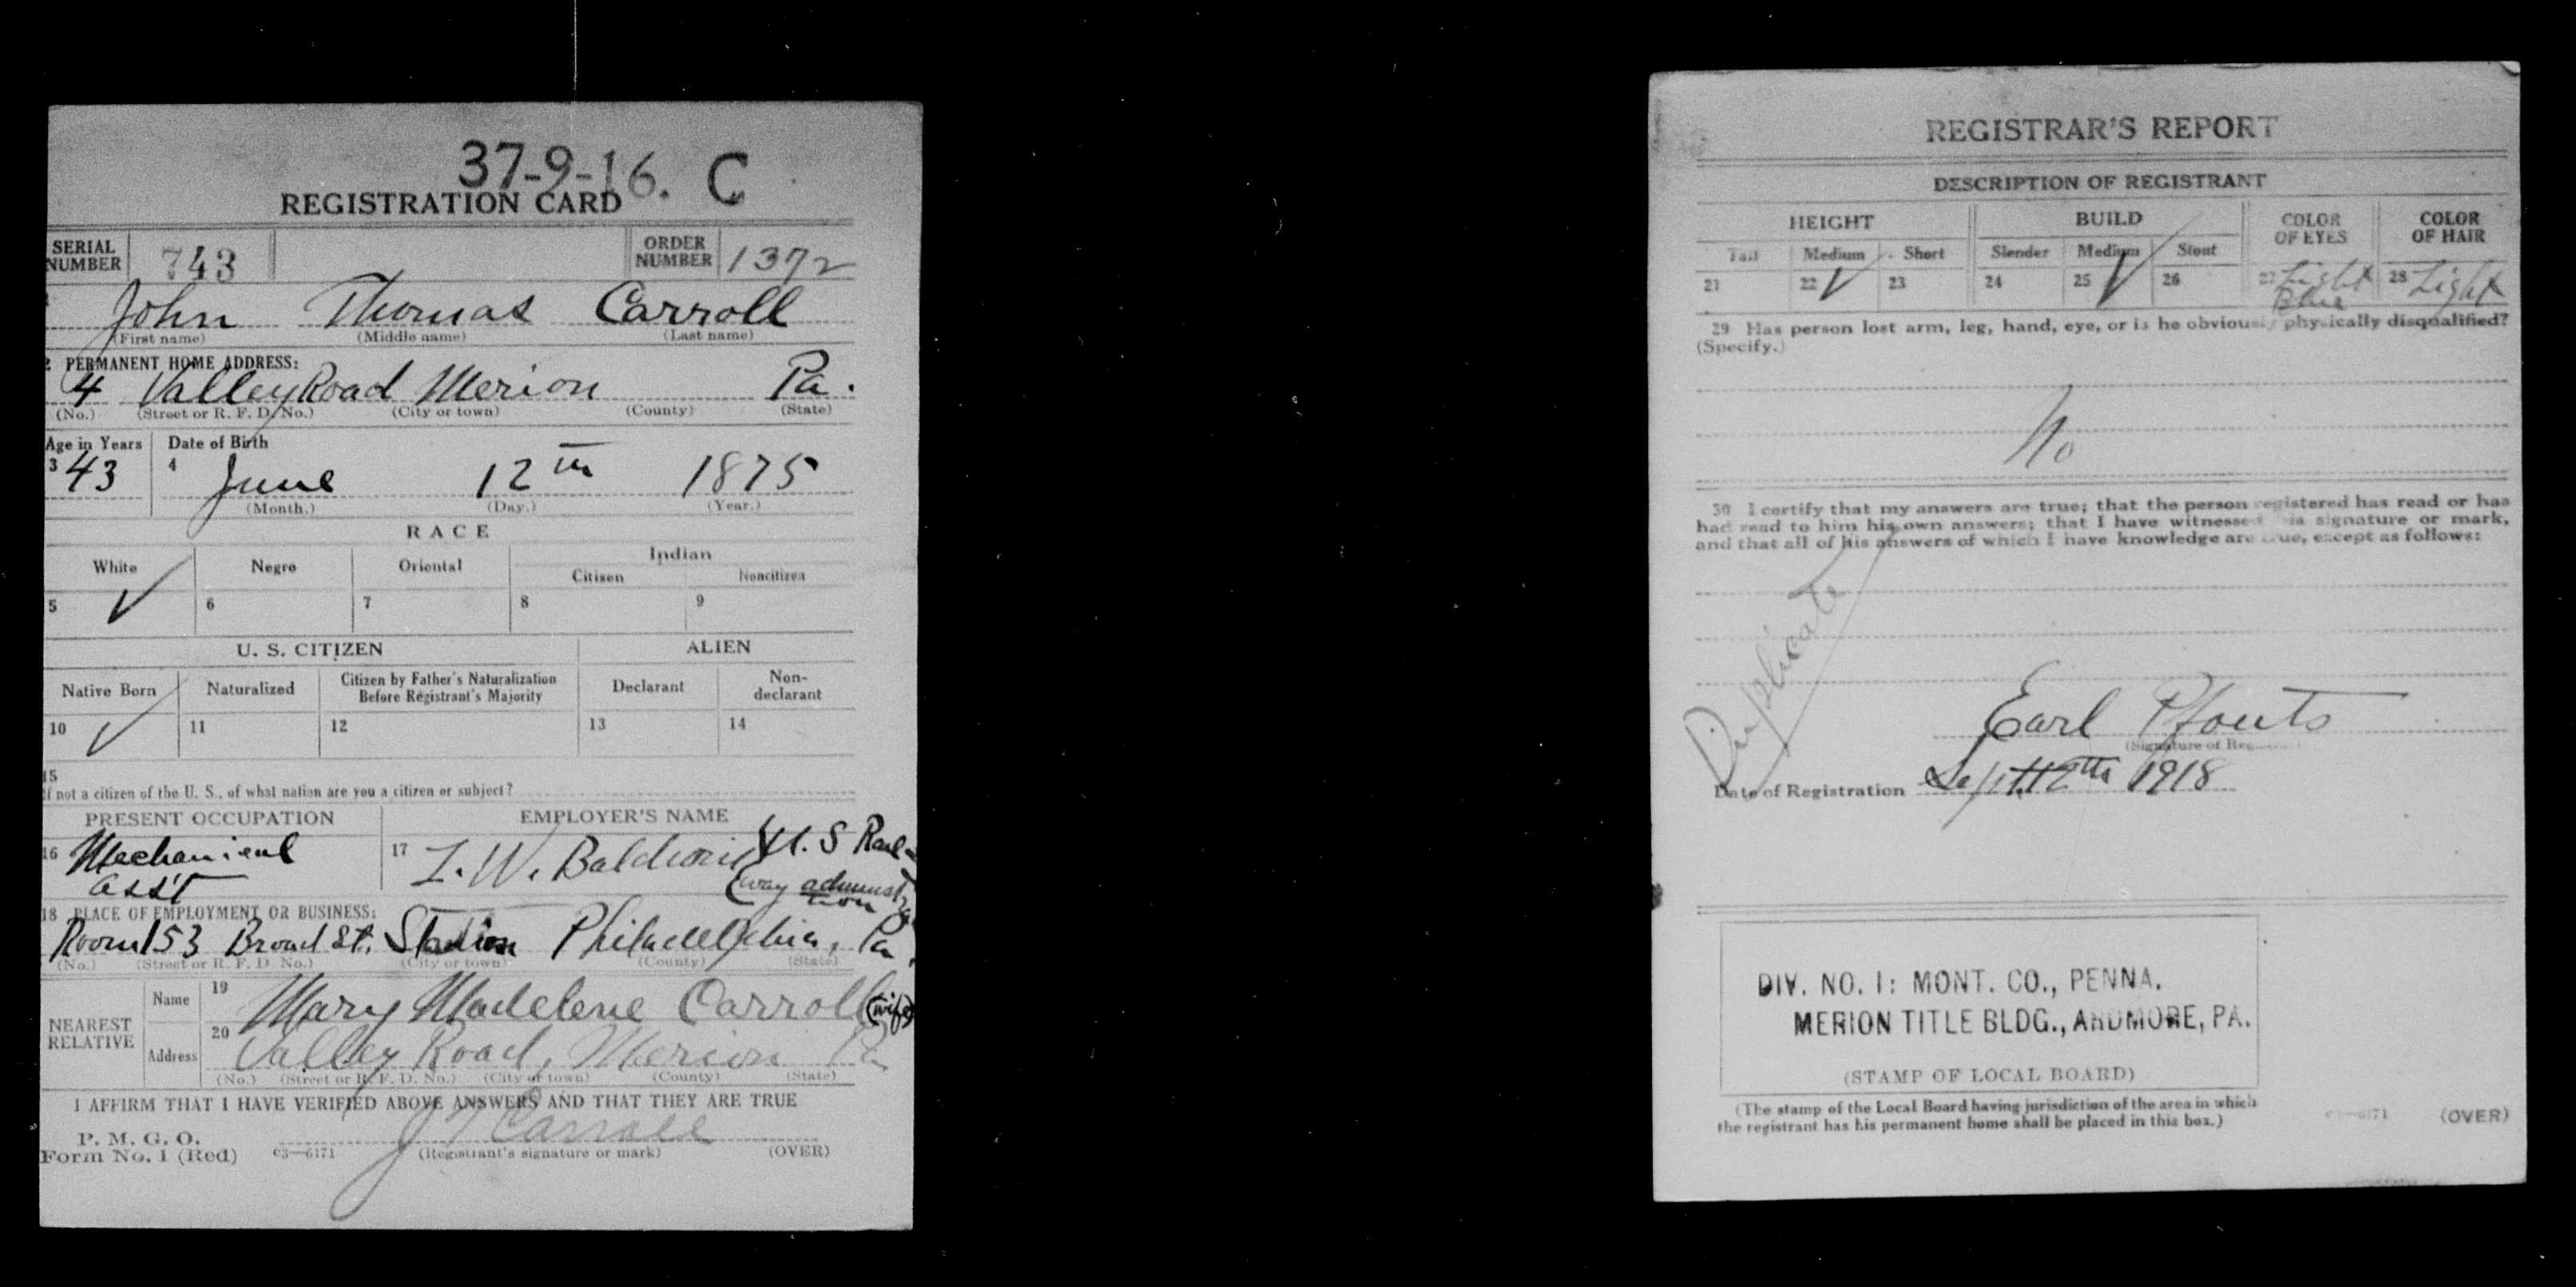 37-9-16. C
REGISTRATION CARD
SERIAL NUMBER 743 ORDER NUMBER 1372
1 John Thomas Carroll
(First name) (Middle name) (Last name)
2 PERMANENT HOME ADDRESS:
4 Valley Road Merion Pa.
(No.) (Street or R. F. D. No.) (City or town) (County) (State)
Age in Years Date of Birth
3 43 4 June 12th 1875
(Month.) (Day.) (Year.)
RACE
White Negro Oriental Indian
Citizen Noncitizen
5 ✓ 6 7 8 9
U. S. CITIZEN ALIEN
Native Born Naturalized Citizen by Father's Naturalization Before Registrant's Majority Declarant Non-declarant
10 ✓ 11 12 13 14
15
If not a citizen of the U. S., of what nation are you a citizen or subject?
PRESENT OCCUPATION EMPLOYER'S NAME
16 Mechanical Ass't 17 L. W. Baldwin (U.S Rail-
way administra
tion
18 PLACE OF EMPLOYMENT OR BUSINESS:
Room 153 Broad St. Station Philadelphia, Pa.
(No.) (Street or R. F. D. No.) (City or town) (County) (State)
NEAREST RELATIVE
Name 19 Mary Madelene Carroll (wife)
Address 20 Valley Road, Merion Pa
(No.) (Street or R. F. D. No.) (City or town) (County) (State)
I AFFIRM THAT I HAVE VERIFIED ABOVE ANSWERS AND THAT THEY ARE TRUE
P. M. G. O.
Form No. 1 (Red) 03—6171 J T Carroll
(Registrant's signature or mark) (OVER)
REGISTRAR'S REPORT
DESCRIPTION OF REGISTRANT
HEIGHT BUILD COLOR OF EYES COLOR OF HAIR
Tall Medium Short Slender Medium Stout
21 22 ✓ 23 24 25 ✓ 26 27 Light Blue 28 Light
29 Has person lost arm, leg, hand, eye, or is he obviously physically disqualified?
(Specify.)
No
30 I certify that my answers are true; that the person registered has read or has
had read to him his own answers; that I have witnessed his signature or mark,
and that all of his answers of which I have knowledge are true, except as follows:
Duplicate
Earl Pfouts
(Signature of Registrar)
Date of Registration Sept. 12th 1918
DIV. NO. 1: MONT. CO., PENNA.
MERION TITLE BLDG., ARDMORE, PA.
(STAMP OF LOCAL BOARD)
(The stamp of the Local Board having jurisdiction of the area in which
the registrant has his permanent home shall be placed in this box.)
03—6171 (OVER)